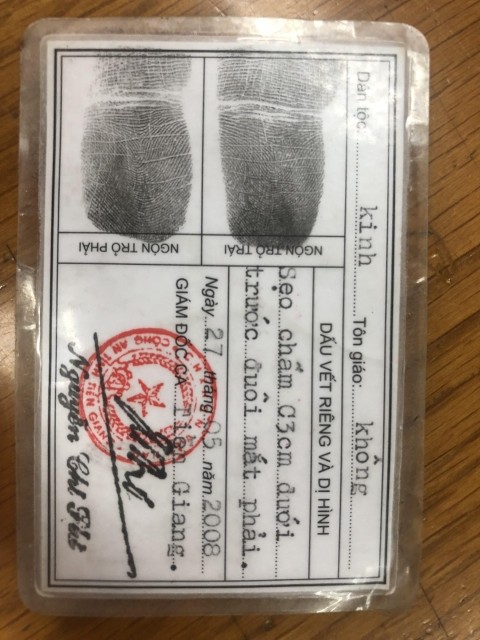 Dân tộc: kinh Tôn giáo: không
DẤU VẾT RIÊNG VÀ DỊ HÌNH
NGÓN TRỎ TRÁI
Sẹo chấm C3cm dưới
trước đuôi mắt phải.
NGÓN TRỎ PHẢI
Ngày 27 tháng 05 năm 2008
GIÁM ĐỐC CA Tiền Giang.
CÔNG AN
TIỀN GIANG
Nguyễn Chí